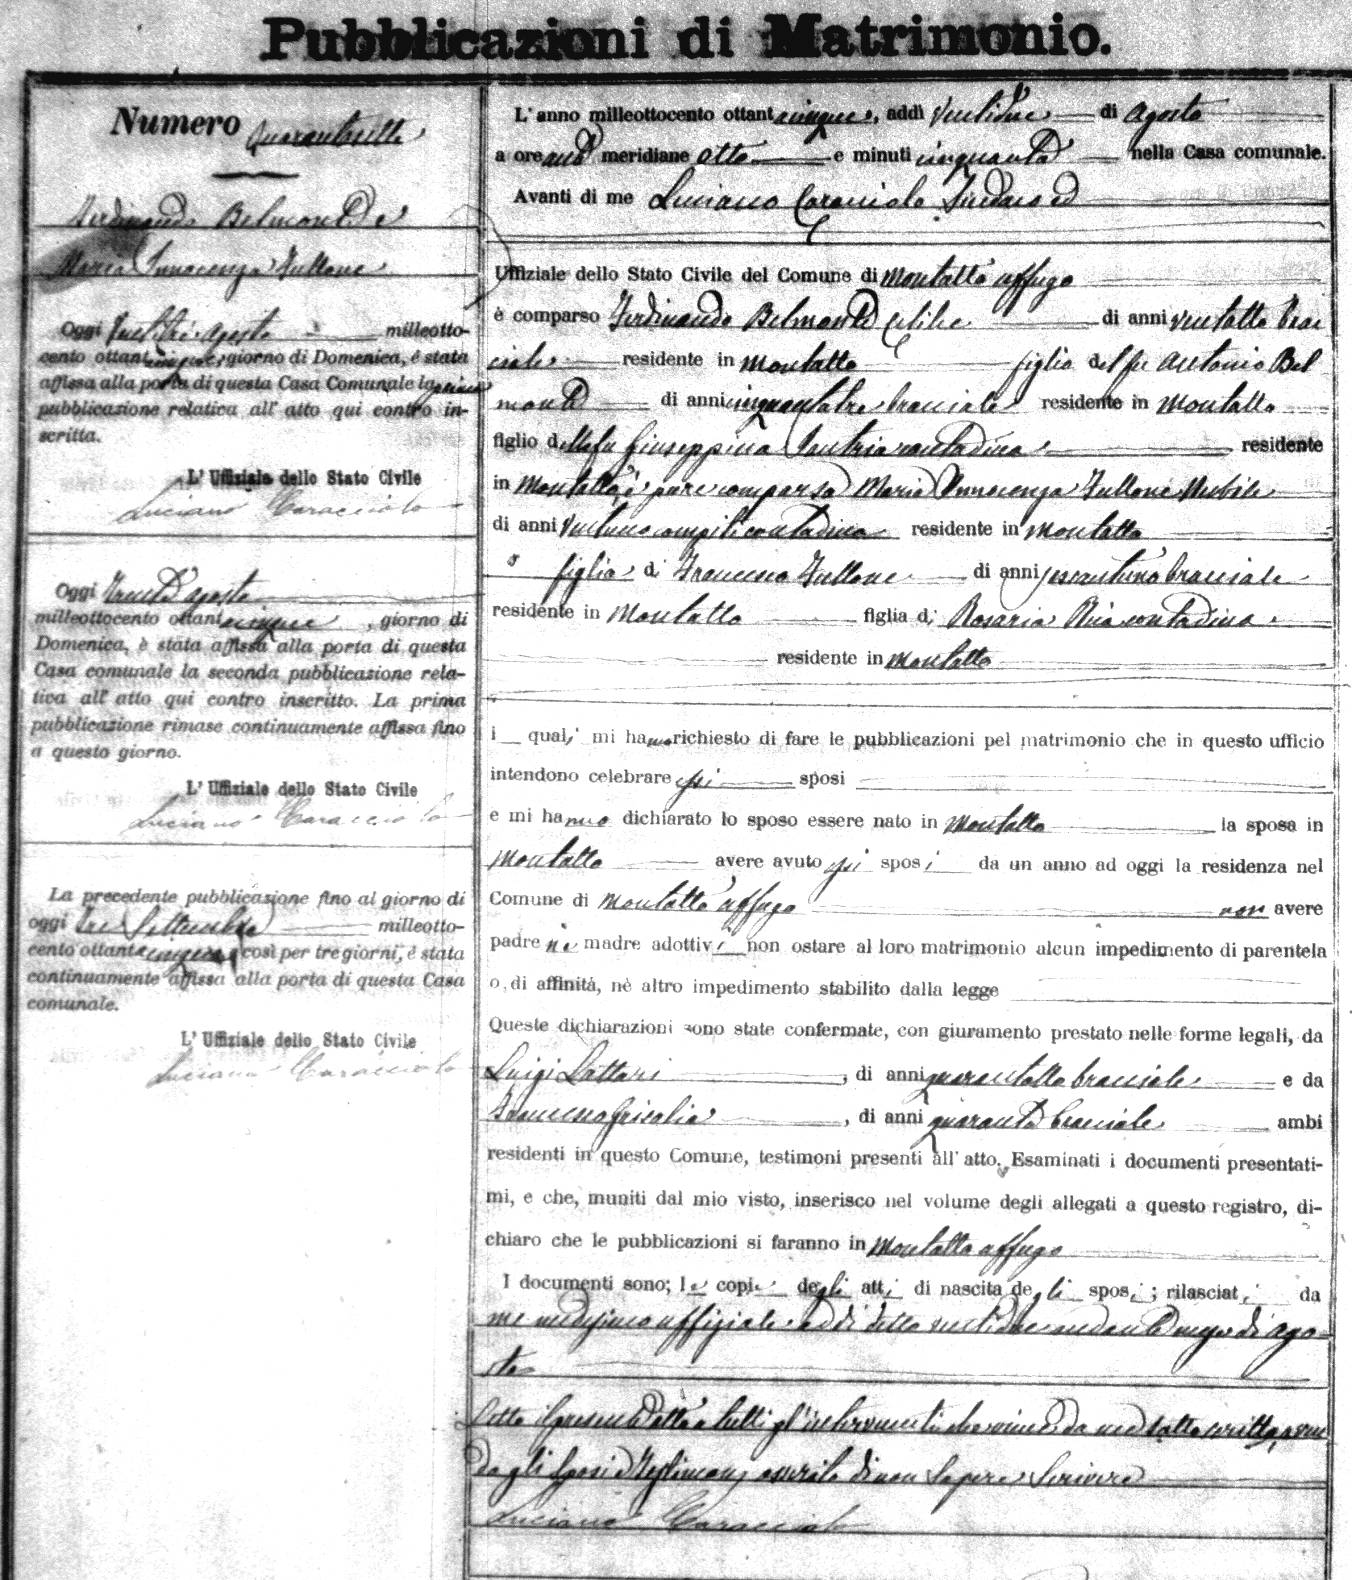 Pubblicazioni di Matrimonio.
Numero Quarantasette
Ferdinando Belmonte e
Maria Innocenza Fullone
Oggi ventitré agosto milleotto-
cento ottantacinque, giorno di Domenica, è stata
affissa alla porta di questa Casa Comunale la prima
pubblicazione relativa all' atto qui contro in-
scritta.
L' Uffiziale dello Stato Civile
Luciano Caracciolo
Oggi trenta agosto
milleottocento ottantacinque, giorno di
Domenica, è stata affissa alla porta di questa
Casa comunale la seconda pubblicazione rela-
tiva all' atto qui contro inscritto. La prima
pubblicazione rimase continuamente affissa fino
a questo giorno.
L' Uffiziale dello Stato Civile
Luciano Caracciolo
La precedente pubblicazione fino al giorno di
oggi tre Settembre milleotto-
cento ottantacinque, così per tre giorni, è stata
continuamente affissa alla porta di questa Casa
comunale.
L' Uffiziale dello Stato Civile
Luciano Caracciolo
L' anno milleottocento ottantacinque, addì ventidue di agosto
a ore anti meridiane otto e minuti cinquanta nella Casa comunale.
Avanti di me Luciano Caracciolo Sindaco ed
Uffiziale dello Stato Civile del Comune di Montalto Uffugo
è comparso Ferdinando Belmonte celibe di anni ventotto brac
ciale residente in Montalto figlio del fu Antonio Bel
monte di anni cinquantatre bracciale residente in Montalto
figlio della fu Giuseppina contadina residente
in Montalto, è pure comparsa Maria Innocenza Fullone Nubile
di anni ventuno compiti contadina residente in Montalto
figlia di Francesco Fullone di anni sessantuno bracciale
residente in Montalto figlia di Rosaria Ria contadina
residente in Montalto
i quali mi hanno richiesto di fare le pubblicazioni pel matrimonio che in questo ufficio
intendono celebrare essi sposi
e mi hanno dichiarato lo sposo essere nato in Montalto la sposa in
Montalto avere avuto essi sposi da un anno ad oggi la residenza nel
Comune di Montalto Uffugo non avere
padre nè madre adottivi non ostare al loro matrimonio alcun impedimento di parentela
o di affinità, nè altro impedimento stabilito dalla legge
Queste dichiarazioni sono state confermate, con giuramento prestato nelle forme legali, da
Luigi Lattari, di anni quarantotto bracciale e da
Francesco Grisolia, di anni quaranta bracciale ambi
residenti in questo Comune, testimoni presenti all' atto. Esaminati i documenti presentati-
mi, e che, muniti dal mio visto, inserisco nel volume degli allegati a questo registro, di-
chiaro che le pubblicazioni si faranno in Montalto Uffugo
I documenti sono; le copie degli atti di nascita degli sposi; rilasciati da
me medesimo uffiziale addì detto ventidue andante mese di ago-
sto
Letto il presente atto a tutti gl' intervenuti che viene da me sottoscritto, avendo
gli Sposi e Testimoni asserito di non Sapere Scrivere
Luciano Caracciolo